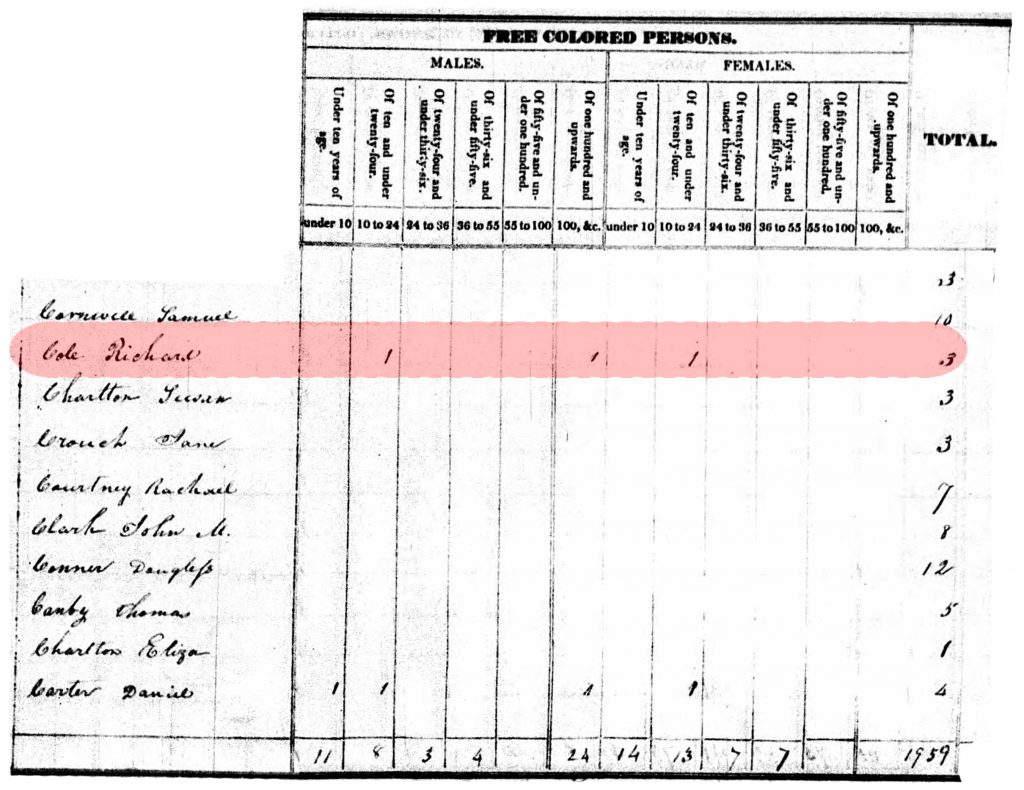 FREE COLORED PERSONS.
MALES. FEMALES.
Under ten years of age. Of ten and under twenty-four. Of twenty-four and under thirty-six. Of thirty-six and under fifty-five. Of fifty-five and un-der one hundred. Of one hundred and upwards. Under ten years of age. Of ten and under twenty-four. Of twenty-four and under thirty-six. Of thirty-six and under fifty-five. Of fifty-five and un-der one hundred. Of one hundred and upwards. TOTAL.
under 10 10 to 24 24 to 36 36 to 55 55 to 100 100, &c. under 10 10 to 24 24 to 36 36 to 55 55 to 100 100, &c.
3
Cornwell Samuel 10
Cole Richard 1 1 1 3
Charlton Susan 3
Crouch Jane 3
Courtney Rachael 7
Clark John M. 8
Conner Douglass 12
Canby Thomas 5
Charlton Eliza 1
Carter Daniel 1 1 1 1 4
11 8 3 4 24 14 13 7 7 1959